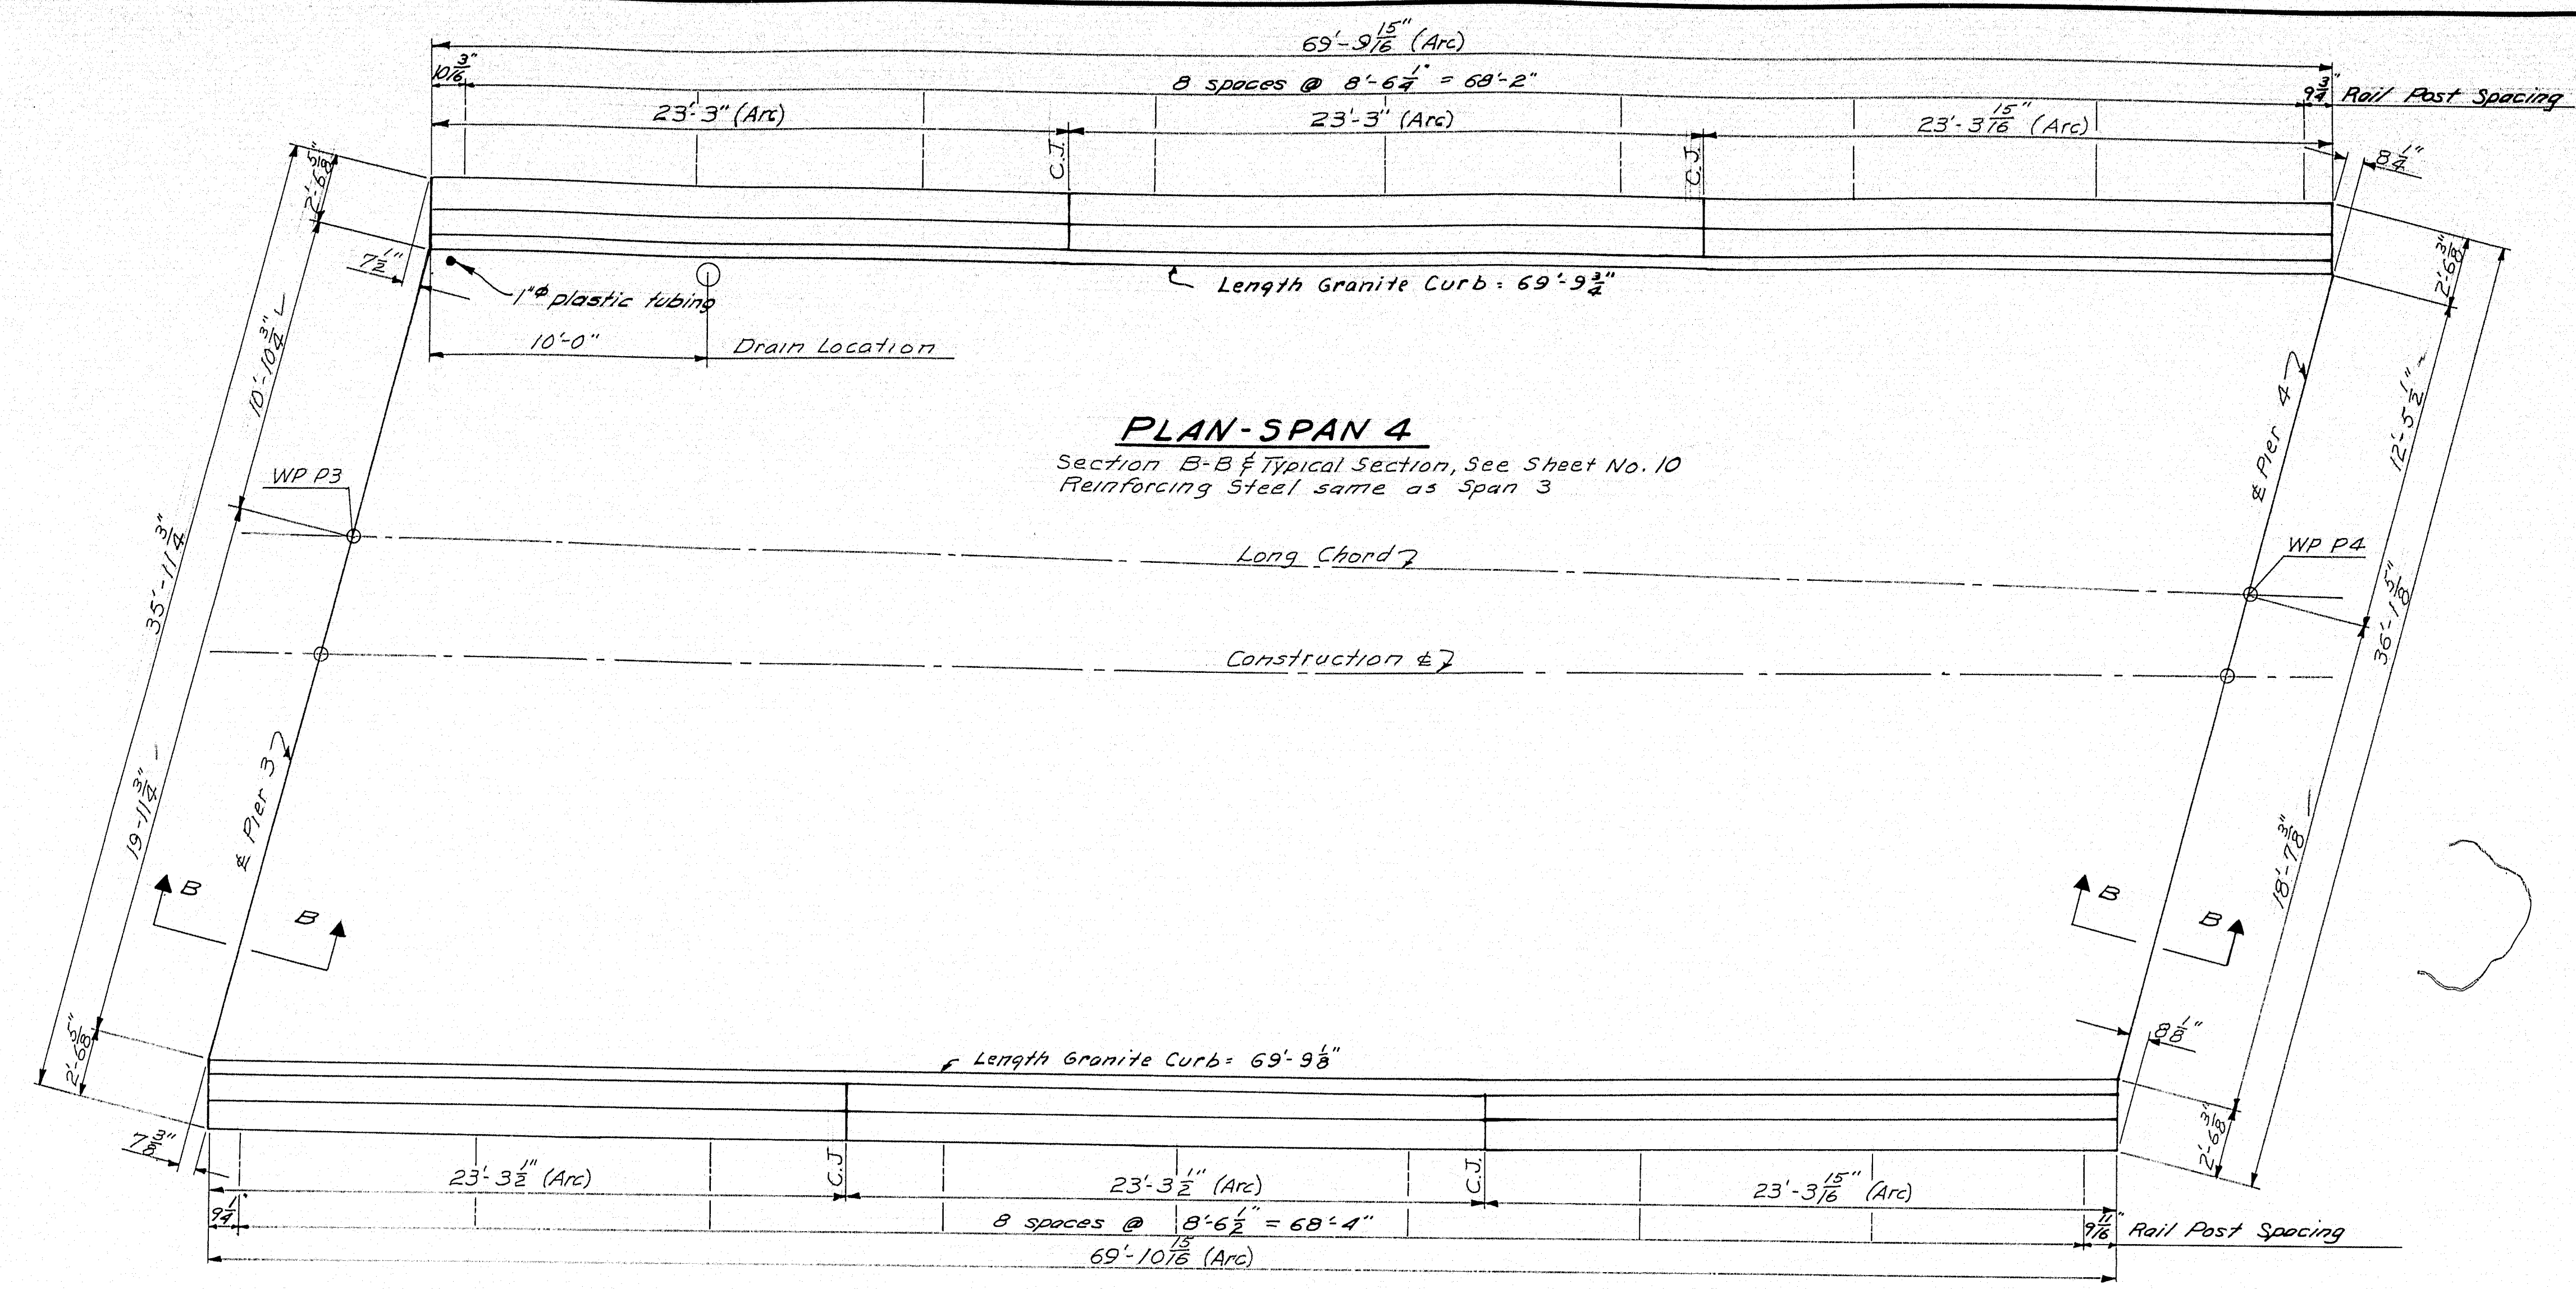 69'-9 15/16" (Arc)
10 3/16"
8 spaces @ 8'-6 1/4" = 68'-2"
9 3/4" Rail Post Spacing
23'-3" (Arc)
23'-3" (Arc)
23'-3 15/16" (Arc)
C.J.
C.J.
2'-6 5/8"
8 1/4"
7 1/2"
2'-6 3/8"
1"φ plastic tubing
Length Granite Curb = 69'-9 3/4"
10'-0"
Drain Location
10'-10 3/4"
12'-5 1/2"
℄ Pier 4
PLAN-SPAN 4
Section B-B & Typical Section, See Sheet No. 10
Reinforcing Steel same as Span 3
WP P3
WP P4
35'-11 3/4"
36'-1 5/8"
Long Chord
Construction ℄
℄ Pier 3
19'-11 3/4"
18'-7 3/8"
B
B
B
B
8 1/8"
2'-6 5/8"
Length Granite Curb = 69'-9 1/8"
2'-6 3/8"
7 3/8"
C.J.
C.J.
23'-3 1/2" (Arc)
23'-3 1/2" (Arc)
23'-3 15/16" (Arc)
9 1/4"
8 spaces @ 8'-6 1/2" = 68'-4"
9 11/16" Rail Post Spacing
69'-10 15/16 (Arc)